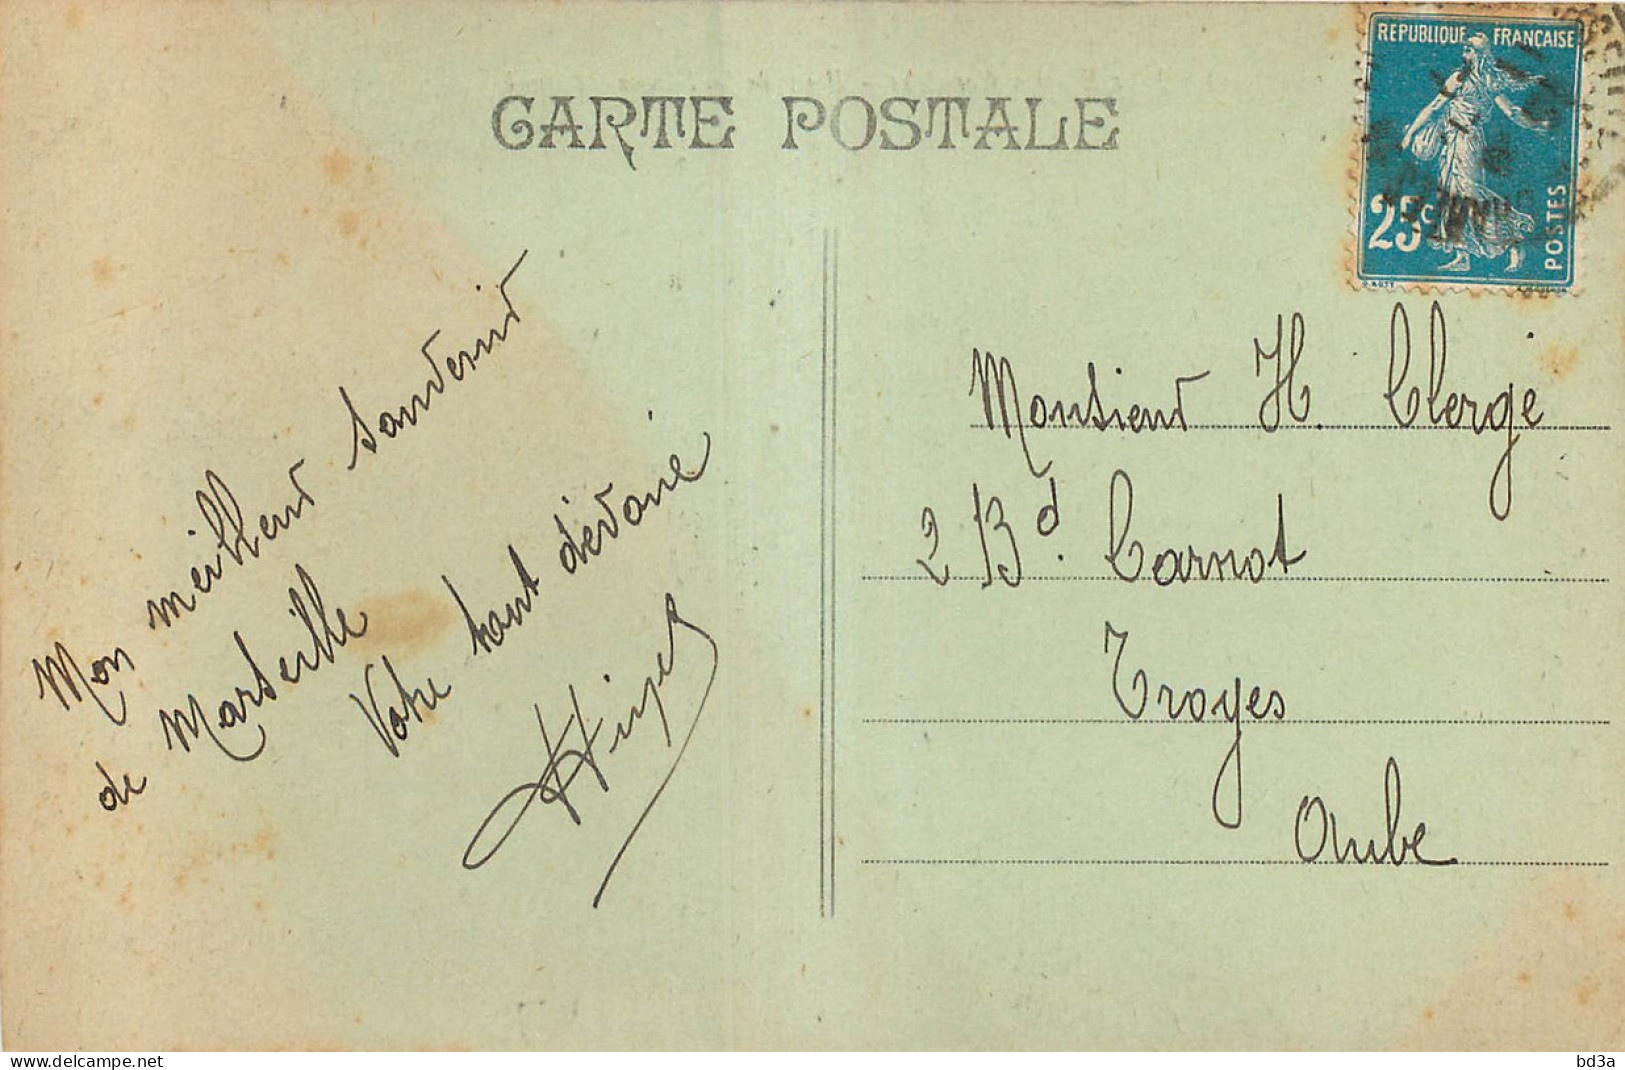 CARTE POSTALE
REPUBLIQUE FRANÇAISE
25c
POSTES
Mon meilleur souvenir
de Marseille
Votre tant dévoué
Monsieur H. Clergé
2 Bd. Carnot
Troyes
Aube
www.delcampe.net
bd3a